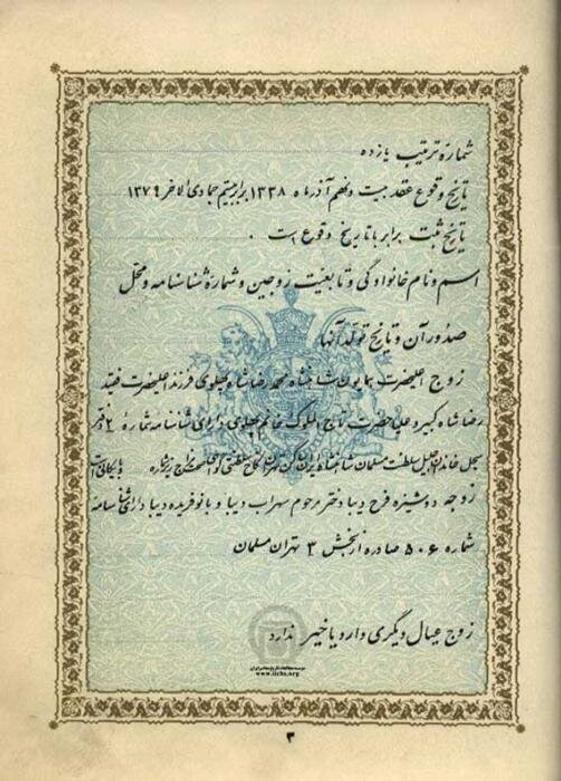 شماره ترتیب یازده
تاریخ وقوع عقد بیست و نهم آذرماه ۱۳۳۸ برابر بیستم جمادی الاخر ۱۳۷۹
تاریخ ثبت برابر با تاریخ وقوع است .
اسم و نام خانوادگی و تابعیت زوجین و شماره شناسنامه و محل
صدور آن و تاریخ تولد آنها
زوج اعلیحضرت همایون شاهنشاه محمد رضا شاه پهلوی فرزند اعلیحضرت فقید
رضا شاه کبیر و علیاحضرت تاج الملوک خانم پهلوی دارای شناسنامه شماره ۲ دفتر
سجل خاندان جلیل سلطنت مسلمان شاهنشاه ایران ساکن تهران
زوجه دوشیزه فرح دیبا دختر مرحوم سهراب دیبا و بانو فریده دیبا دارای شناسنامه
شماره ۵۰۶ صادره از بخش ۳ تهران مسلمان
زوج عیال دیگری دارد یا خیر ندارد
موسسه مطالعات تاریخ معاصر ایران
www.iichs.org
۳